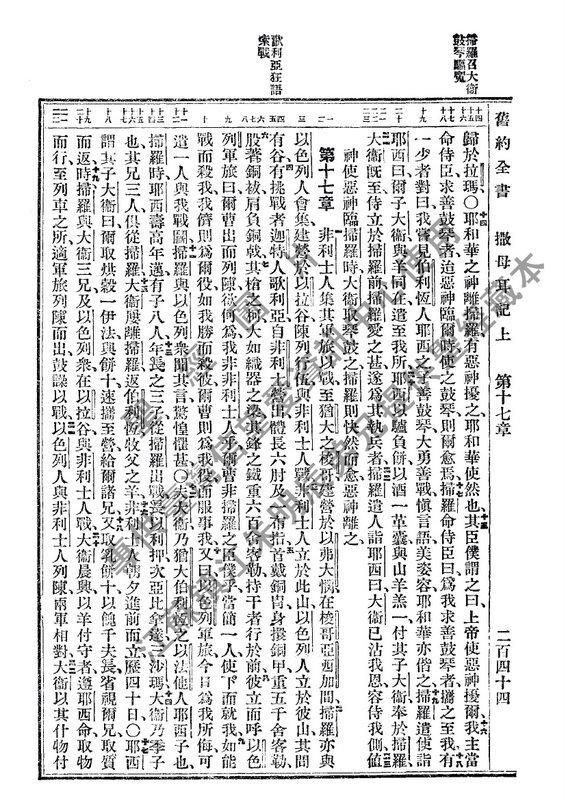 舊約全書 撒母耳記上 第十七章 二百四十四
掃羅召大衛
鼓琴驅魔
歌利亞狂語
索戰
歸於拉瑪〇耶和華之神離掃羅有惡神擾之耶和華使然也其臣僕謂之曰上帝使惡神擾爾我主當
命侍臣求善鼓琴者迨惡神臨爾時使之鼓琴則爾愈焉掃羅命侍臣曰爲我求善鼓琴者攜之至我有
一少者對曰我嘗見伯利恆人耶西之子善鼓琴大勇善戰愼言語美姿容耶和華亦偕之掃羅遣使詣
耶西曰爾子大衛與羊同在遣至我所耶西以驢負餅以酒一革囊與山羊羔一付其子大衛奉於掃羅
大衛旣至侍立於掃羅前掃羅愛之甚遂爲其執兵者掃羅遣人詣耶西曰大衛已沾我恩容侍我側値
神使惡神臨掃羅時大衛取琴鼓之掃羅則快然而愈惡神離之
第十七章 非利士人集其軍旅以戰至猶大之梭哥建營於以弗大憫在梭哥亞西加間掃羅亦與
以色列人會集建營於以拉谷陳列行伍與非利士人戰非利士人立於此山以色列人立於彼山其間
有谷有挑戰者迦特人歌利亞自非利士營出體長六肘及有布指首戴銅冑身擐銅甲重五千舍客勒
股著銅袚肩負銅戟其槍柯大如織器之梁其鋒之鐵重六百舍客勒持干者行於前彼立而呼以色
列軍旅曰爾曹出而列陳欲何爲我非非利士人乎爾曹非掃羅之臣僕乎當簡一人使下而就我如能
戰而殺我我儕則爲爾役如我勝而殺彼爾曹則爲我役而服事我又曰以色列軍旅今日爲我所侮可
遣一人與我戰鬬掃羅與以色列衆聞其言驚惶懼甚〇夫大衛乃猶大伯利恆之以法他人耶西子也
掃羅時耶西壽高年邁有子八人年長之三子從掃羅出戰長以利押次亞比拿達三沙瑪大衛乃季子
也其兄三人俱從掃羅大衛屢離掃羅返伯利恆牧父之羊非利士人朝夕進前而立歷四十日〇耶西
謂其子大衛曰爾取烘穀一伊法與餅十速攜至營給爾諸兄又取乳餅十以餽千夫長省視爾兄取質
而返時掃羅與大衛三兄及以色列衆在以拉谷與非利士人戰大衛晨興以羊付守者遵耶西命取物
而行至列車之所適軍旅列陳而出鼓譟以戰以色列人與非利士人列陳兩軍相對大衛以其什物付